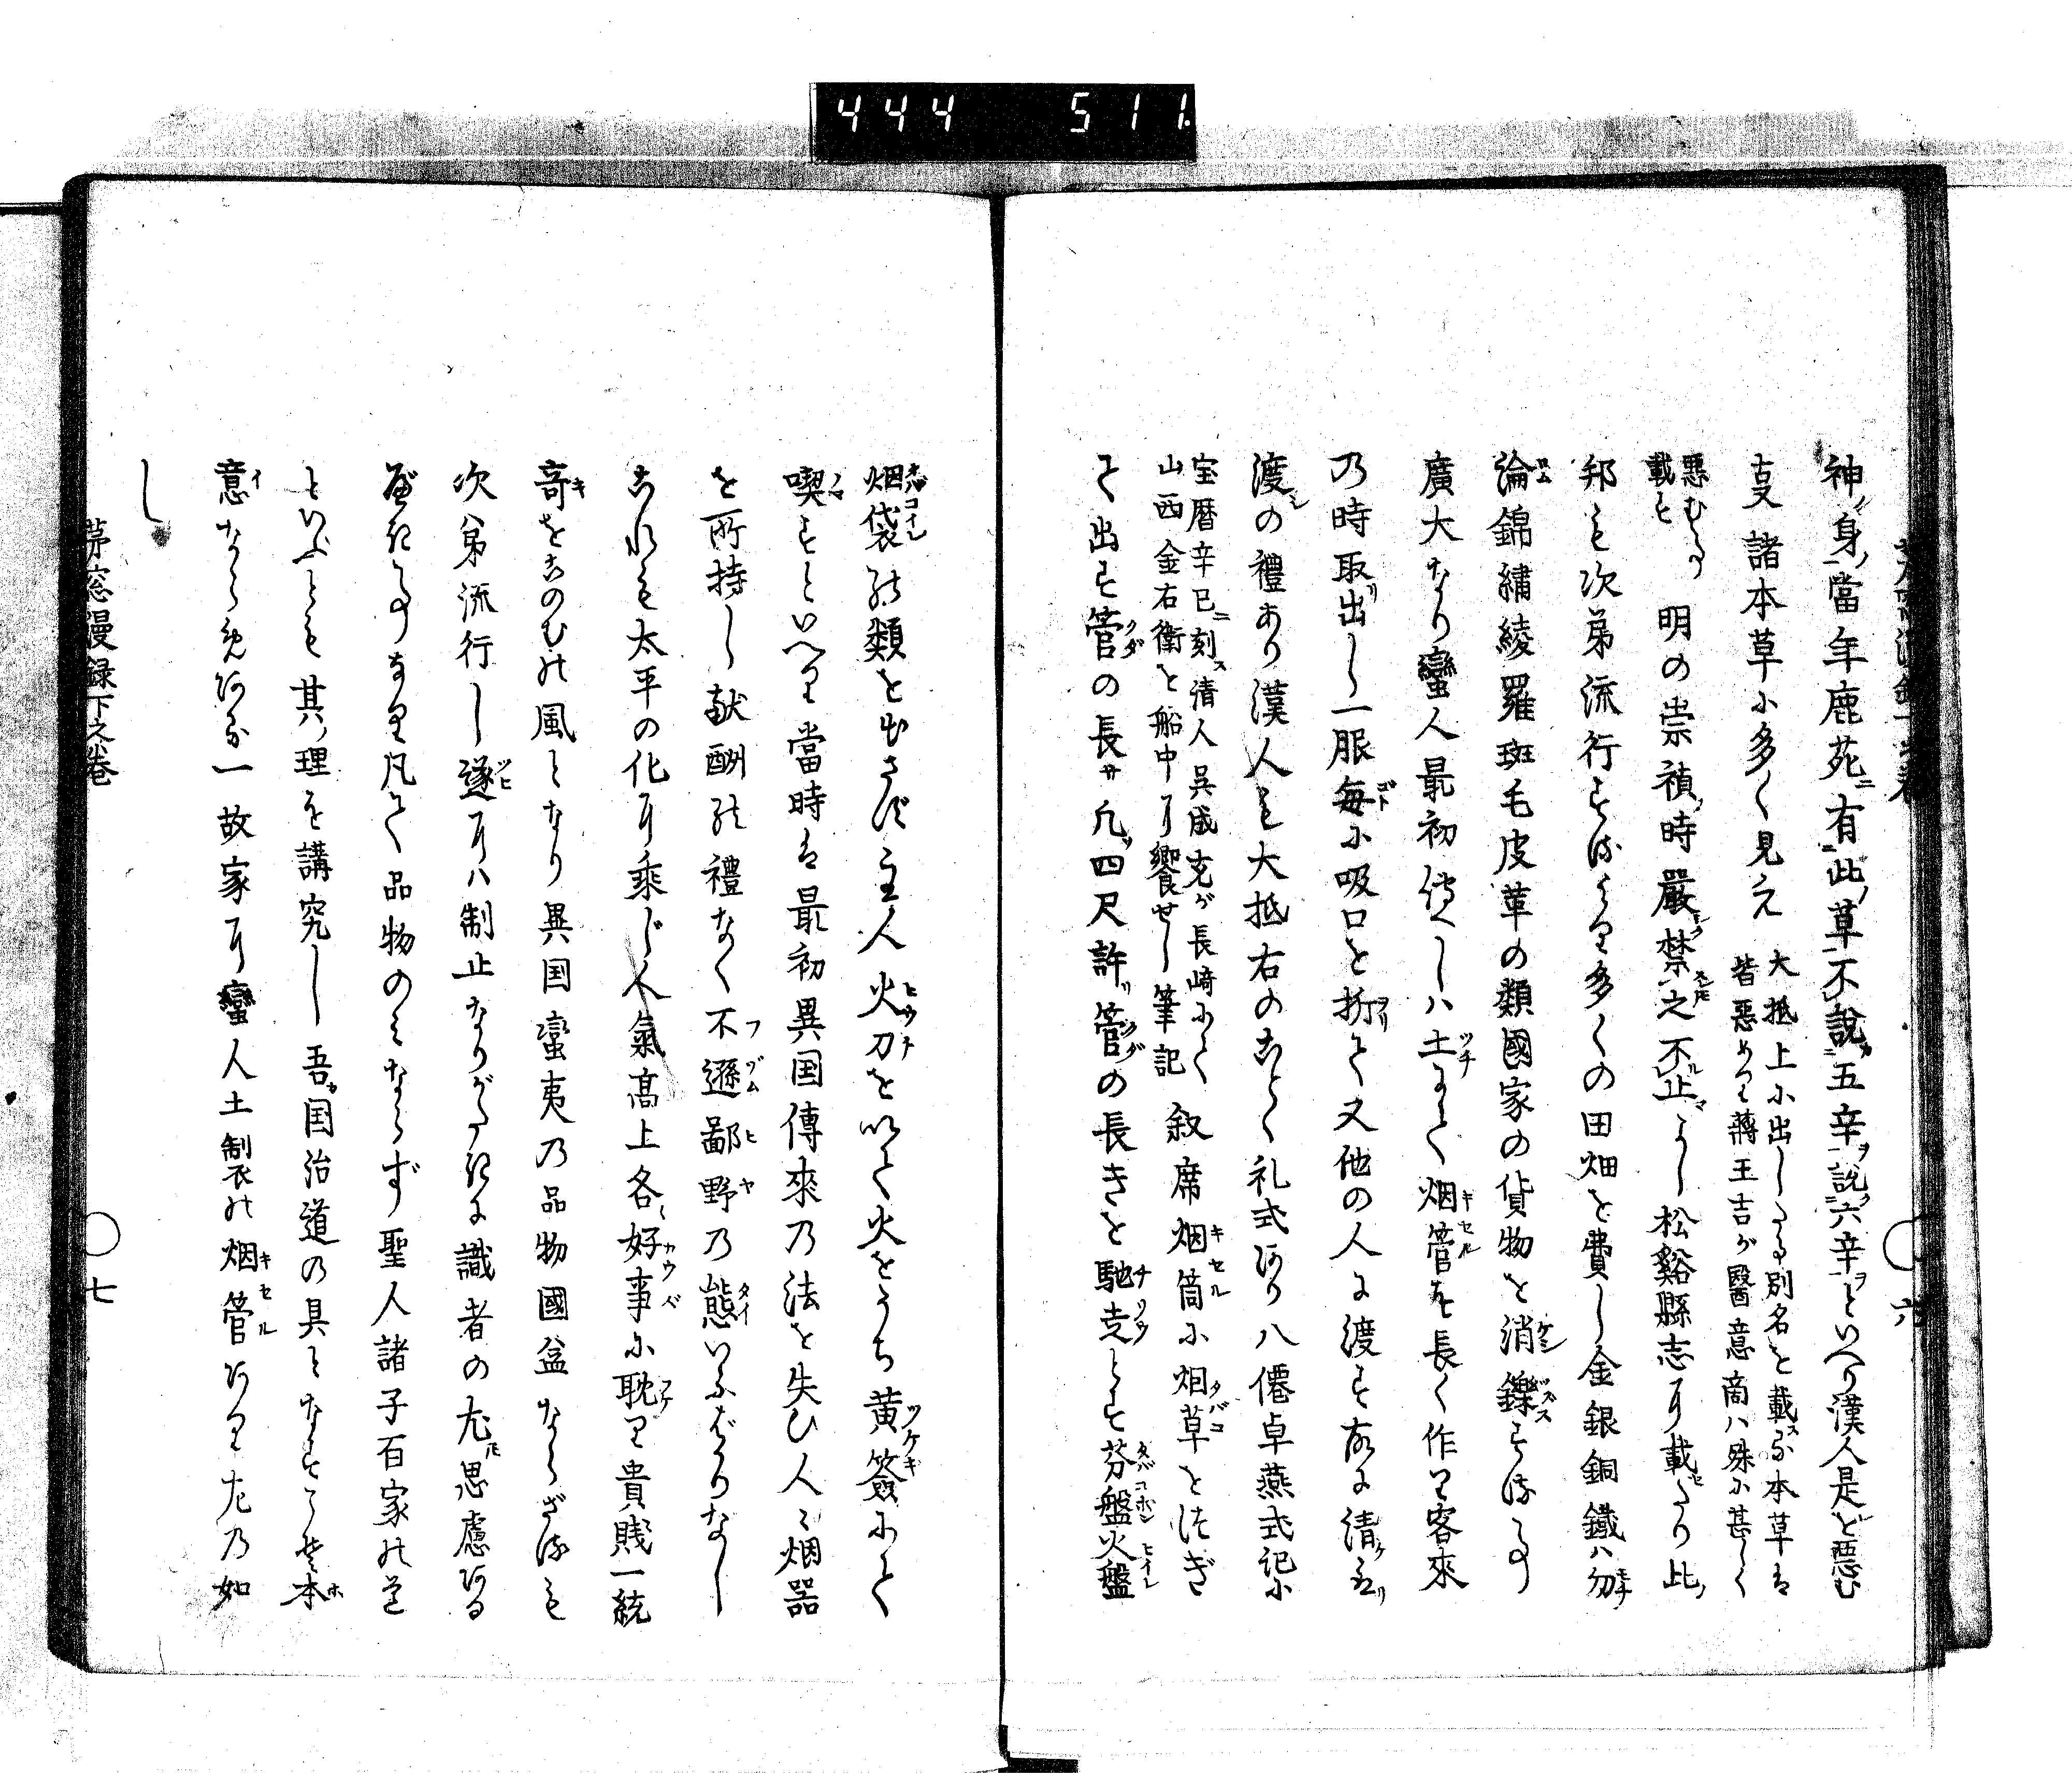 444 511
神ノ身ノ當年鹿苑ニ有ニ此ノ草一不レ說カ五辛ヲ說ニ六辛ヲといへり漢人是ど惡む
叓諸本草に多く見え
大抵上に出したる別名を載スル本草は
皆惡めり蔣王吉が醫意商ハ殊に甚しく
惡むよ
載す
明の崇禎ノ時嚴禁スレ𪜈之不レ止マよし松谿縣志に載セたり此ノ
邦も次第流行するより多くの田畑を費し金銀銅鐵ハ勿
論錦繡綾羅斑毛皮革の類國家の貨物を消鑠する事
廣大なり蠻人最初傳へしハ土にて烟管を長く作り客來
の時取出し一服每に吸口を折て又他の人に渡す故に請取リ
渡しの禮あり漢人も大抵右のごとく礼式あり八僊卓燕式記に
宝暦辛巳ニ刻ス清人吳成充が長崎にて
山西金右衛を船中に饗せし筆記
叙席烟筒に烟草をつぎ
て出す管の長サ凡ソ四尺許リ管の長きを馳走とす芬盤火盤
烟袋の類を出さず主人火刀を以て火をうち黃簽にて
喫すといへり當時は最初異国傳來の法を失ひ人々烟器
を所持し献酬の禮なく不遜鄙野の態いふばかりなし
これも太平の化に乘じ人氣高上各〻好事に耽り貴賤一統
奇をこのむの風となり異国蛮夷の品物國益ならざるも
次第流行し遂にハ制止なりがたきに識者の尤モ思慮ある
べき事なり凡て品物のみならず聖人諸子百家の道
といふとも其ノ理を講究し吾カ国治道の具となすこそ本
意ならめある一故家に蠻人土製の烟管あり左の如
し
茅窓漫録下之巻
六
七